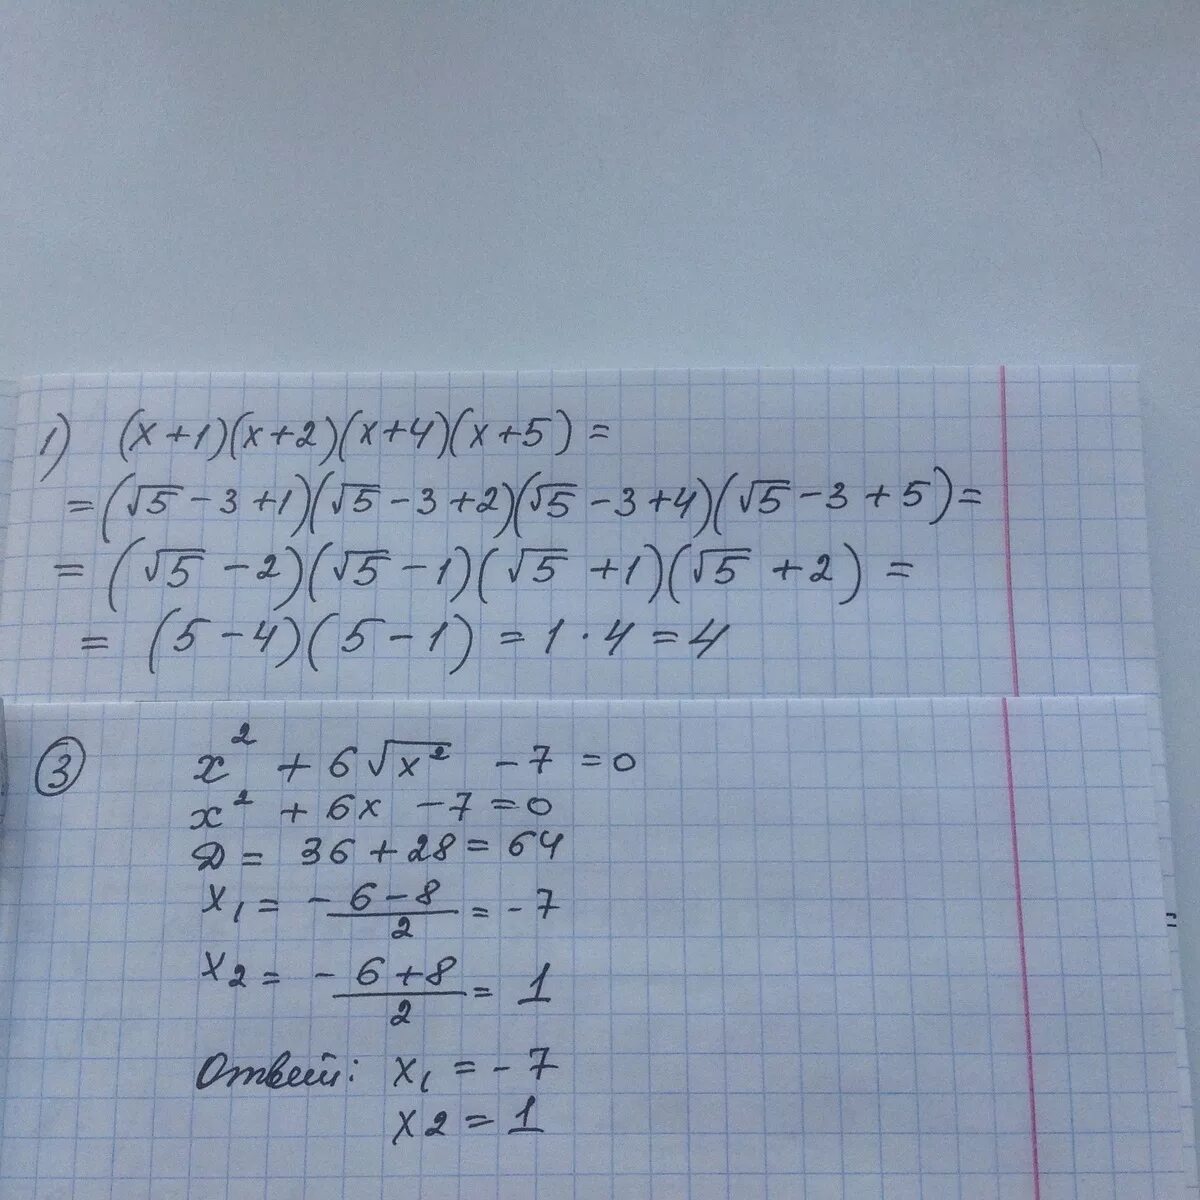 1) (x+1)(x+2)(x+4)(x+5) =
= (√5 - 3 + 1)(√5 - 3 + 2)(√5 - 3 + 4)(√5 - 3 + 5) =
= (√5 - 2)(√5 - 1)(√5 + 1)(√5 + 2) =
= (5 - 4)(5 - 1) = 1 · 4 = 4
③ x² + 6√x² - 7 = 0
x² + 6x - 7 = 0
D = 36 + 28 = 64
x₁ = -6-8/2 = -7
x₂ = -6+8/2 = 1
Ответ: x₁ = -7
x2 = 1